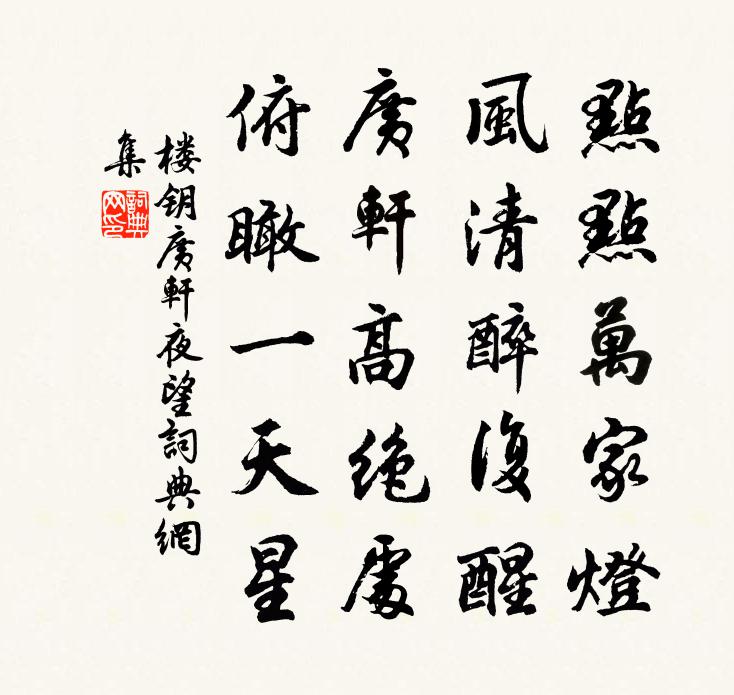 點點萬家燈
風清醉復醒
廣軒高絶處
俯瞰一天星
楼钥廣軒夜望詞典網
集
詞典
网印